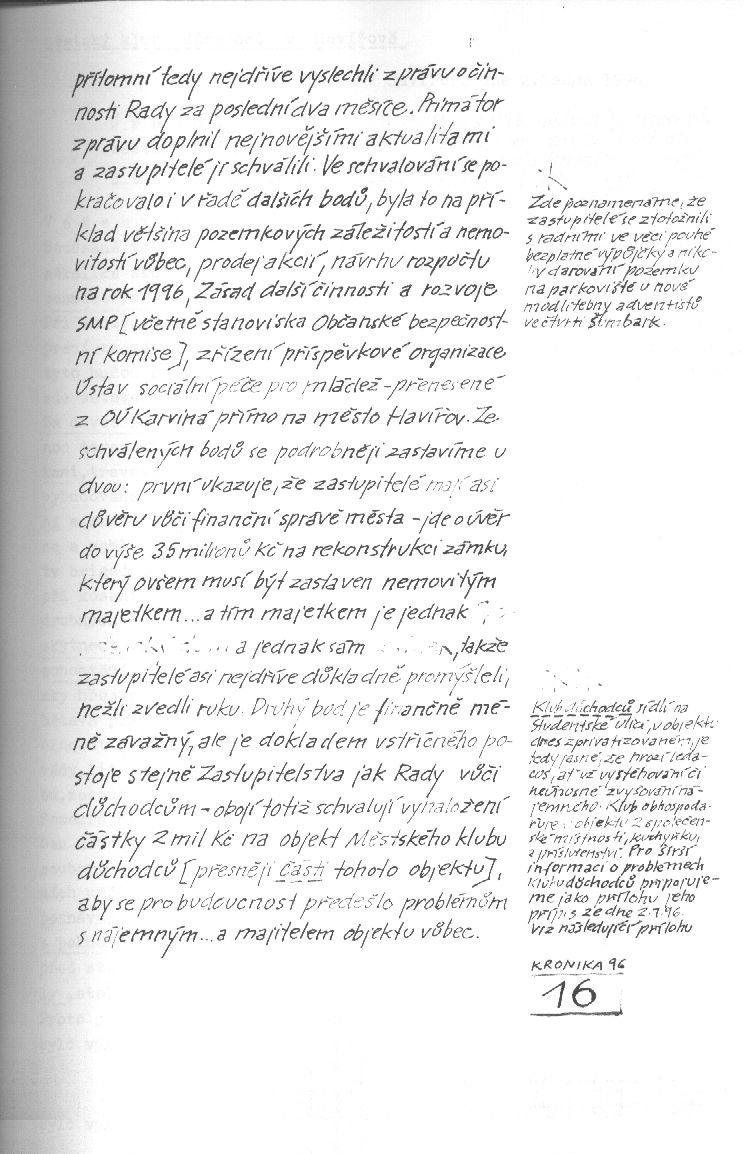 přítomní tedy nejdříve vyslechli zprávu o čin-
nosti Rady za poslední dva měsíce. Primátor
zprávu doplnil nejnovějšími aktualitami
a zastupitelé ji schválili. Ve schvalování se po-
kračovalo i v řadě dalších bodů, byla to na pří-
klad většina pozemkových záležitostí a nemo-
vitostí vůbec, prodej akcií, návrhu rozpočtu
na rok 1996, Zásad další činnosti a rozvoje
SMP [včetně stanoviska Občanské bezpečnost-
ní komise], zřízení příspěvkové organizace
Ústav sociální péče pro mládež - přenesené
z OÚ Karviná přímo na město Havířov. Ze
schválených bodů se podrobněji zastavíme u
dvou: první ukazuje, že zastupitelé mají asi
důvěru vůči finanční správě města - jde o úvěr
do výše 35 milionů Kč na rekonstrukci zámku,
který ovšem musí být zastaven nemovitým
majetkem... a tím majetkem je jednak
a jednak sám , takže
zastupitelé asi nejdříve důkladně promýšleli,
nežli zvedli ruku. Druhý bod je finančně mé-
ně závažný, ale je dokladem vstřícného po-
stoje stejně Zastupitelstva jak Rady vůči
důchodcům - obojí totiž schvalují vynaložení
částky 2 mil Kč na objekt Městského klubu
důchodců [přesněji části tohoto objektu],
aby se pro budoucnost předešlo problémům
s nájemným... a majitelem objektu vůbec.
Zde poznamenáme, že
zastupitelé se ztotožnili
s radními ve věci pouhé
bezplatné výpůjčky a niko-
liv darování pozemku
na parkoviště u nové
modlitebny adventistů
ve čtvrti Šumbark.
Klub důchodců sídlí na
Studentské ulici, v objektu
dnes zprivatizovaném, je
tedy jasné, že hrozí leda-
cos, ať už vystěhování či
neúnosné zvyšování ná-
jemného. Klub obhospoda-
řuje v objektu 2 společen-
ské místnosti, kuchyňku,
a příslušenství. Pro širší
informaci o problémech
Klubu důchodců připojuje-
me jako přílohu jeho
přípis ze dne 2.7.96.
Viz následující přílohu
KRONIKA 96
16